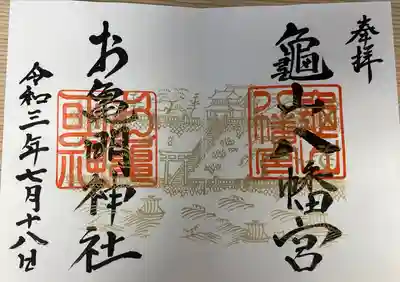 奉拝
龜山八幡宮
お亀明神社
令和三年七月十八日